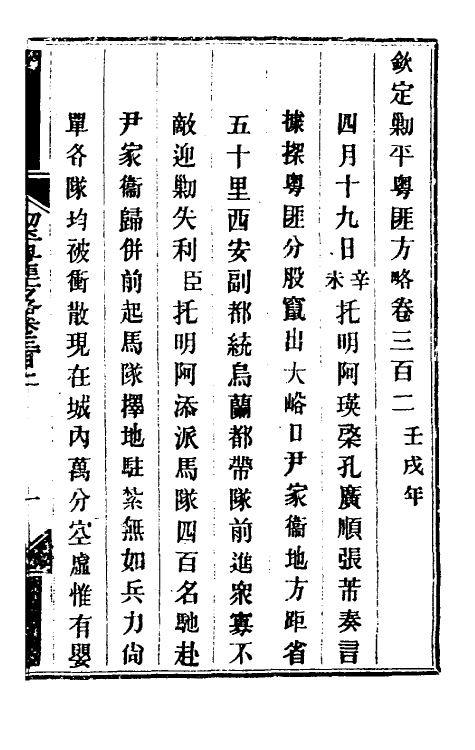 欽定勦平粵匪方略卷三百二 壬戌年
四月十九日辛未托明阿瑛棨孔廣順張芾奏言
據探粵匪分股竄出大峪口尹家衞地方距省
五十里西安副都統烏蘭都帶隊前進衆寡不
敵迎勦失利臣托明阿添派馬隊四百名馳赴
尹家衞歸併前起馬隊擇地駐紮無如兵力尙
單各隊均被衝散現在城內萬分空虛惟有嬰